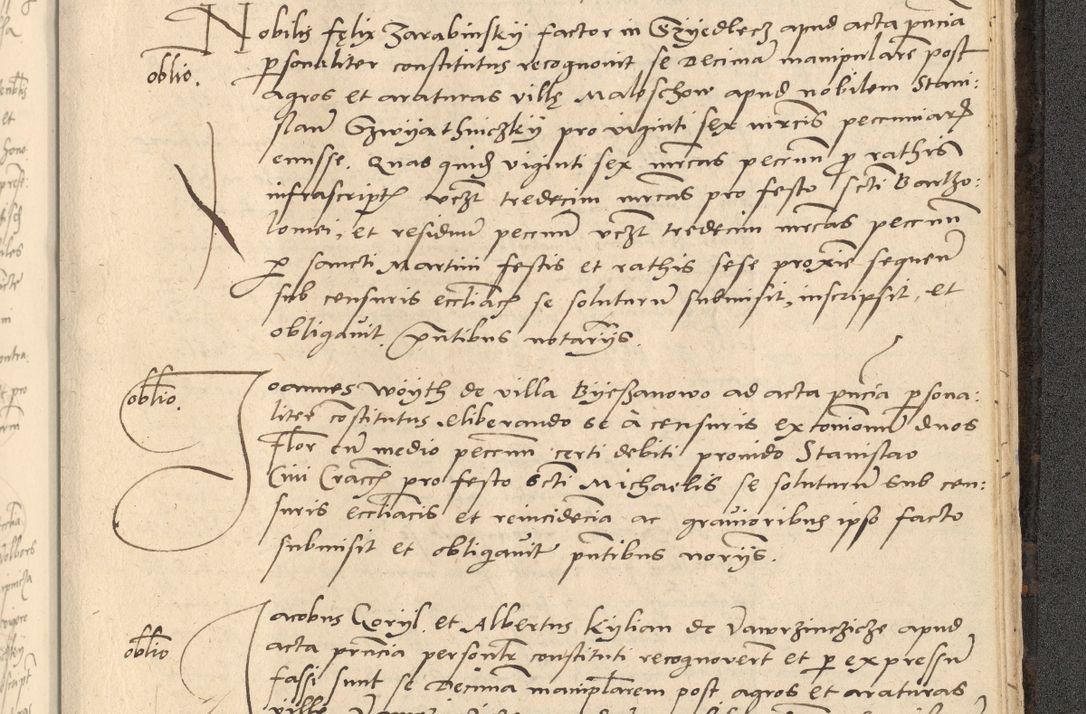 Nobilis fęlix Zarabinskÿ factor in Gzÿedlecz apud acta pñcia
oblio.
psonaliter constitutus recognovit se Decimā manipularē post
agros et araturas villę Malbschow apud nobilem Stani:
slaū Gzwÿathniczkÿ pro viginti sex mrcis pecuniar
emisse. Quas quid viginti sex mrcas pecuniī p rathis
infrascript vczt tredecim mrcas pro festo scti Bartho:
lomei, et residuū pecuniī vczt tredecim mrcas pecuniī
p sancti Martini festis et rathis sese proxie sequeñ
sub censuris ecctiac se soluturū submisit, inscripsit, et
obligavit. pñtibus notarÿs.
oblio.
Joannes Woÿth de villa Bÿeßanowo ad acta pñcia psona:
liter cōstitutus eliberando se à censuris excoionū duos
Flor cū medio pecuniī certi debiti provido Stanislao
Civi Cracc pro festo scti Michaelis se soluturū sub cen:
suris ecctiacis et reincidecia ac gravioribus ipso facto
submisit et obligavit pñtibus norÿs.
oblio
Jacobus Gorÿl. et Albertus Kÿlian de Vawrzinczicze apud
acta pñcia personlr constituti recognoverūt et p expressū
fassi sunt se Decimā manipłarem post agros et araturas